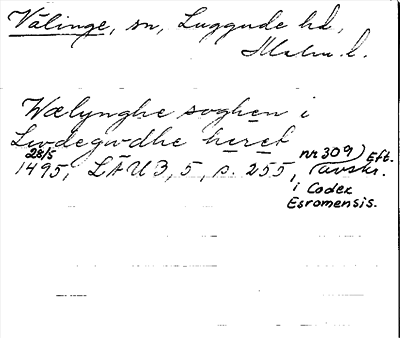 Välinge, sn, Luggude hd,
Malm. l.
Wælynghe soghen i
Lwdegwdhe heret
28/5
1495, LÄU 3, 5, s. 255, nr 309) Eft.
(avskr.
i Codex
Esromensis.